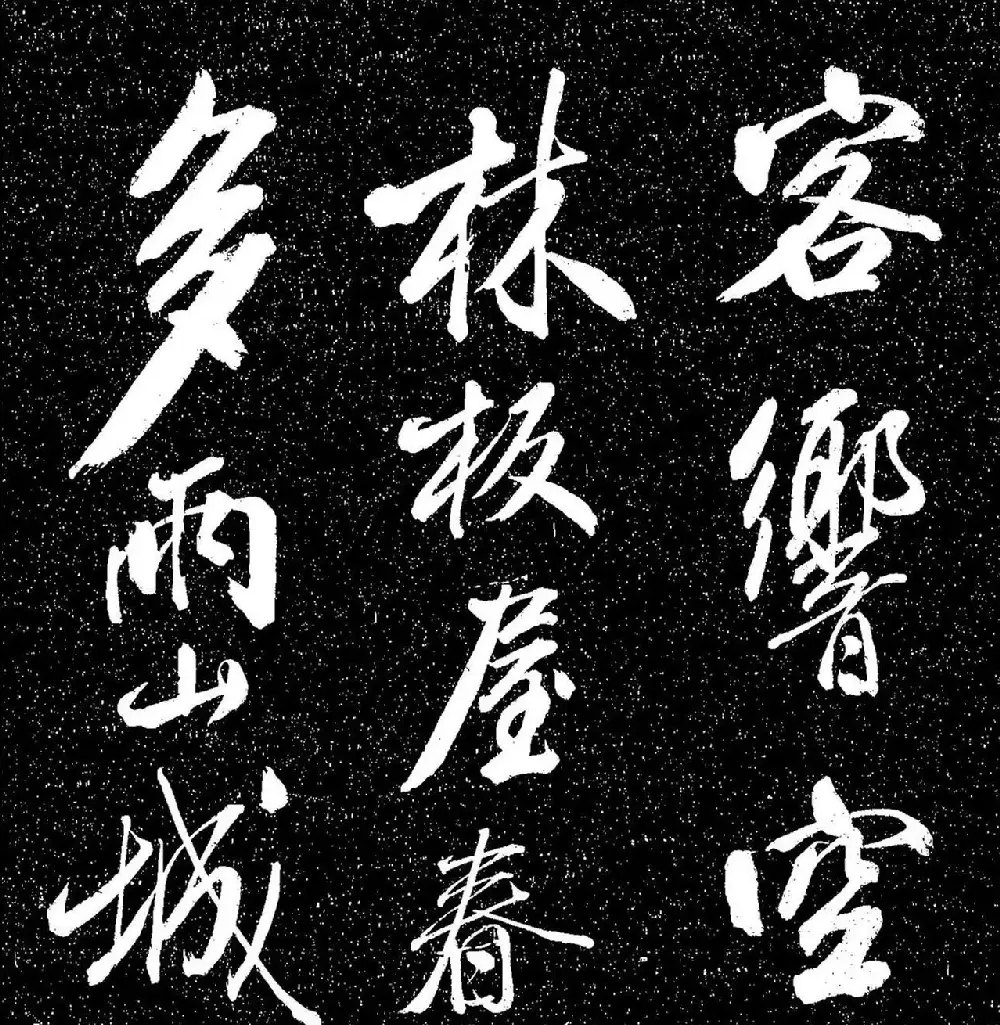 客響空
林板屋春
多雨山城